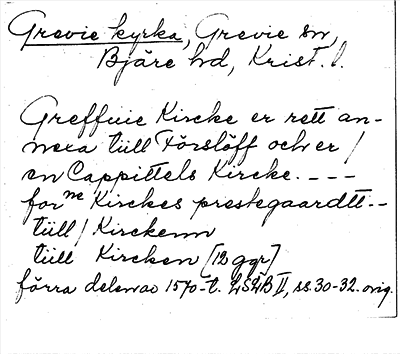 Grevie kyrka, Grevie sn,
Bjäre hd, Krist. l.
Greffuie Kircke er rett an-
nexa tiill Förslöff och er /
en Cappittels Kircke. - - -
for ne Kirckes prestegaardtt - -
tiill / Kirckenn
tiill Kircken [12 ggr]
förra delen av 1570-t. LSÄB II, ss. 30-32. orig.